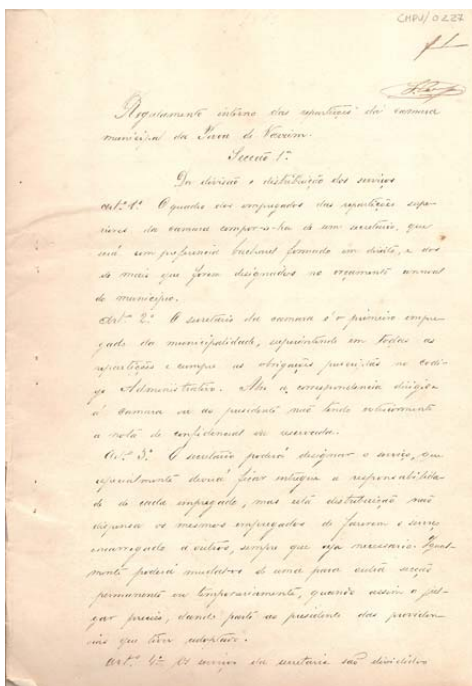 CMPV/0227
f 1
Regulamento interno das repartições da camara
municipal da Povoa de Varzim.
Secção 1ª
Da divisão e distribuição dos serviços
Art.º 1.º O quadro dos empregados das repartições supe-
riores da camara compor-se-ha de um secretario, que
será com preferencia bacharel formado em direito, e dos
de mais que forem designados no orçamento annual
do municipio.
Art.º 2.º O secretario da camara é o primeiro empre-
gado da municipalidade, superintende em todas as
repartições e cumpre as obrigações prescriptas no codi-
go Administrativo. Abre a correspondencia dirigida
á camara ou ao presidente não tendo exteriormente
a nota de confidencial ou reservada.
Art.º 3.º O secretario poderá designar o serviço, que
especialmente deverá ficar entregue a responsabilida-
de de cada empregado, mas esta distribuição não
dispensa os mesmos empregados de fazerem o serviço
encarregado a outros, sempre que seja necessario. Igual-
mente poderá mudal-os de uma para outra secção
permanente ou temporariamente, quando assim o jul-
gar preciso, dando parte ao presidente das providen-
cias que tiver adoptado.
Art.º 4.º Os serviços da secretaria são divididos